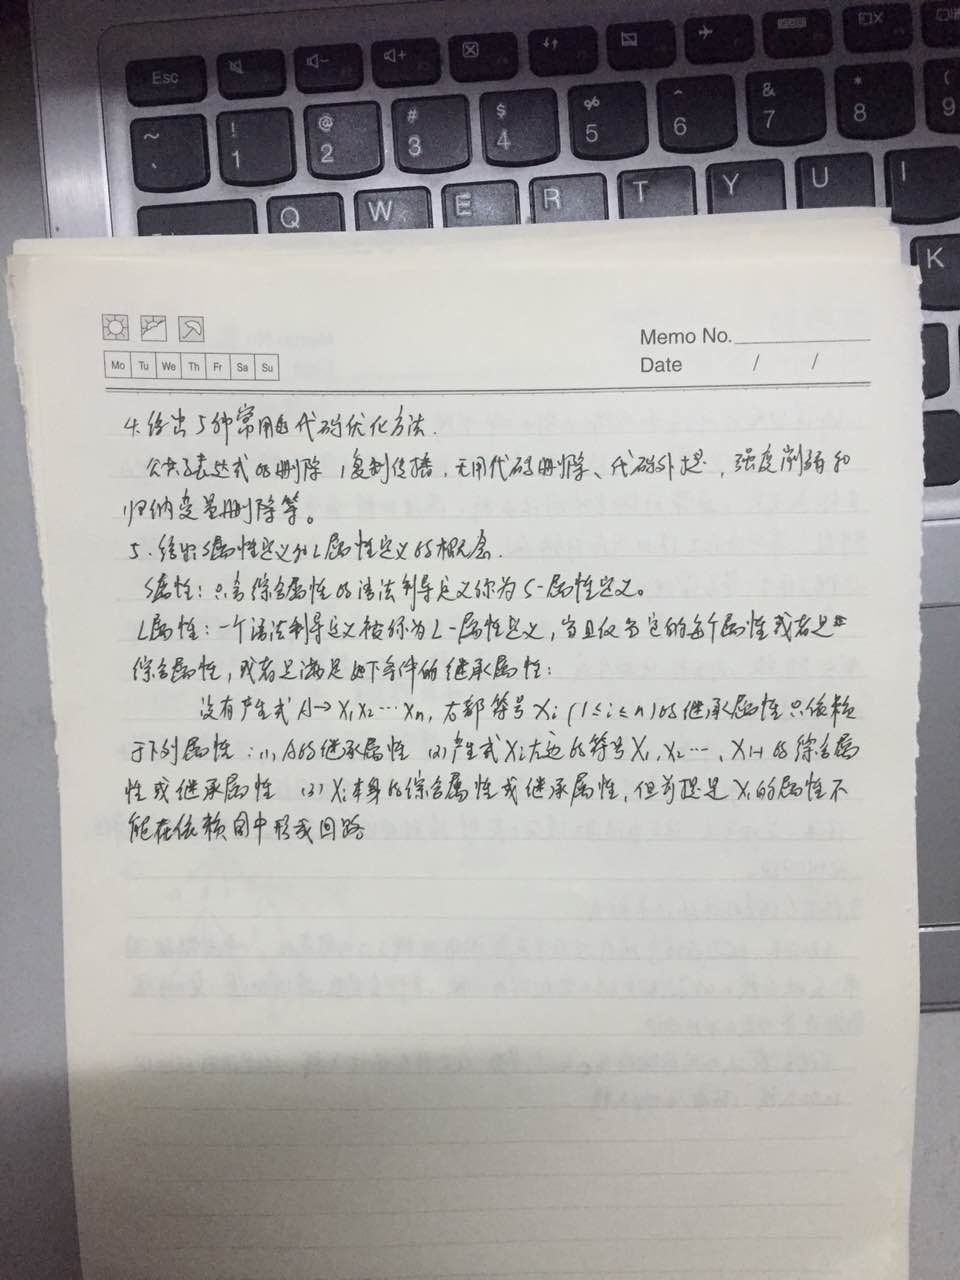 Esc
~ ! @ # $ % ^ & * (
、 1 2 3 4 5 6 7 8 9
Q W E R T Y U I
K
Memo No.
Mo Tu We Th Fr Sa Su
Date / /
4.给出5种常用的代码优化方法.
公共子表达式的删除,复制传播,无用代码删除、代码外提,强度削弱和
归纳变量删除等。
5.给出S属性定义和L属性定义的概念.
S属性:只含综合属性的语法制导定义称为S-属性定义。
L属性:一个语法制导定义被称为L-属性定义,当且仅当它的每个属性或者是
综合属性,或者是满足如下条件的继承属性:
没有产生式A→X1X2…Xn,右部符号Xi(1≤i≤n)的继承属性只依赖
于下列属性:(1)A的继承属性 (2)产生式Xi左边的符号X1,X2…,Xi-1的综合属
性或继承属性 (3)Xi本身的综合属性或继承属性,但前提是Xi的属性不
能在依赖图中形成回路